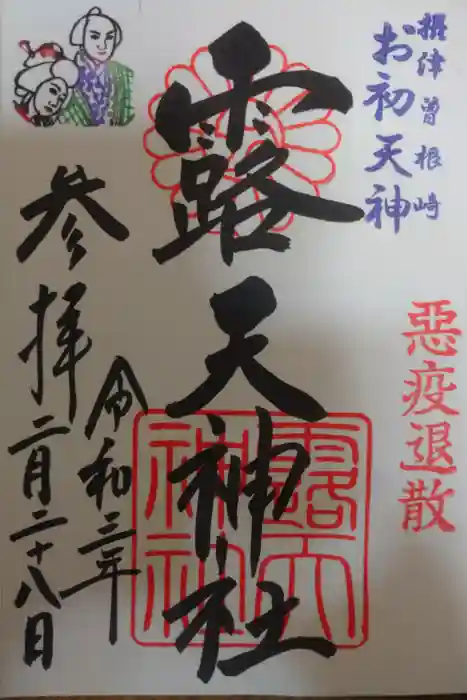 摂津曽根崎
お初天神
悪疫退散
露天神社
露天
神社
令和三年
二月二十八日
参拝